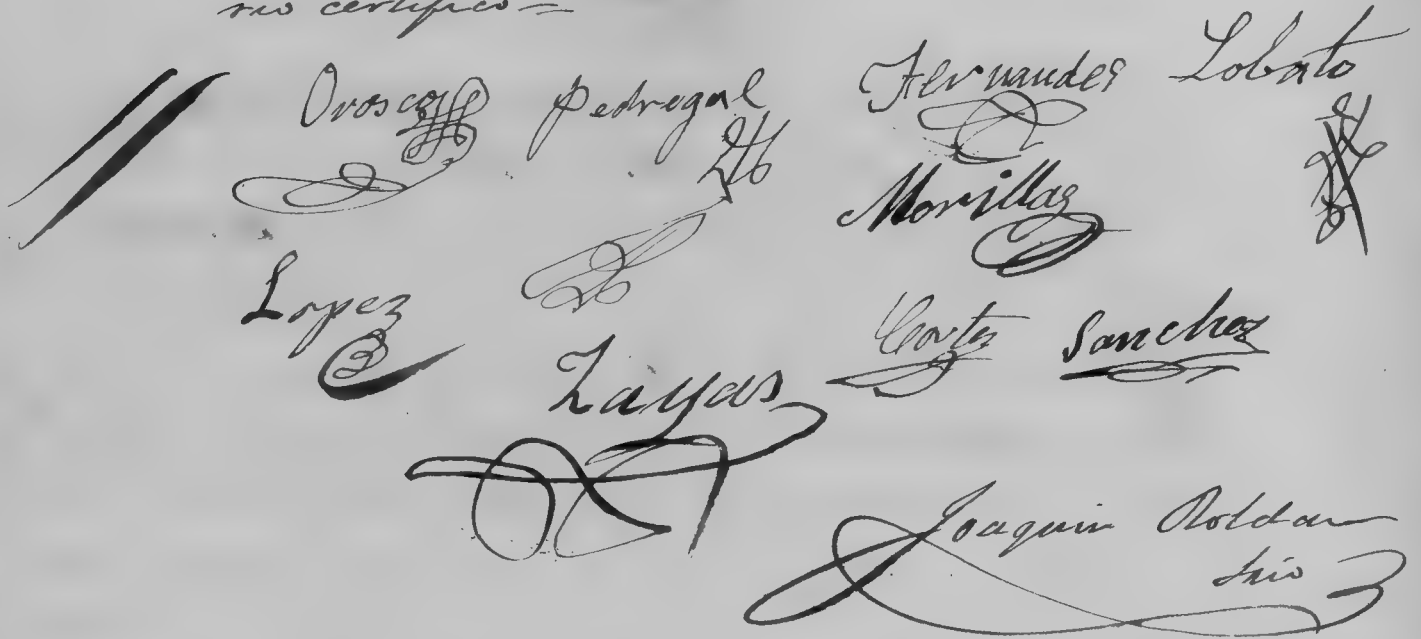 rio certifico =
Orosco Pedregal Hernandes Lobato
Morillas
Lopez
Cortes Sanchez
Zayas
Joaquin Roldan
Srio